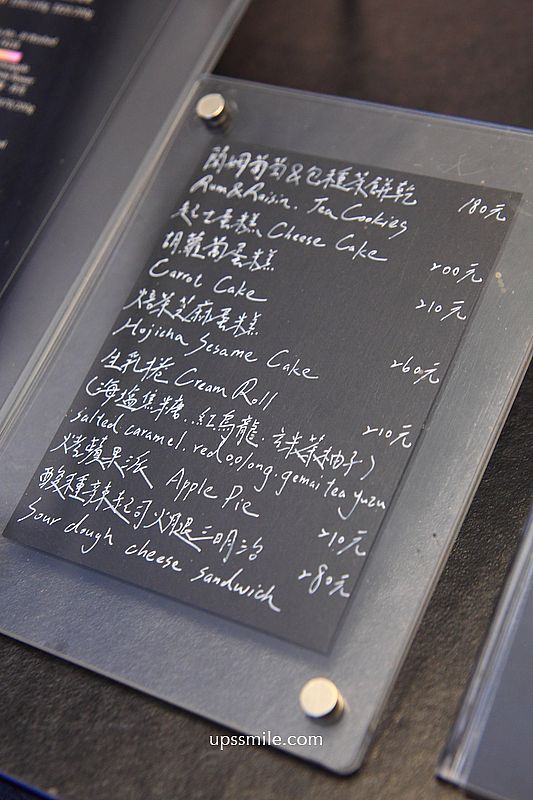 蘭姆葡萄&包種茶餅乾
Rum&Raisin. Tea Cookies 180元
起士蛋糕 Cheese Cake 200元
胡蘿蔔蛋糕
Carrot Cake 210元
焙茶芝麻蛋糕
Hojicha Sesame Cake 260元
生乳捲 Cream Roll
(海塩焦糖..紅烏龍.玄米茶柚子) 210元
salted caramel. red oolong. gemai tea yuzu
烤蘋果派 Apple Pie 210元
酸種辣起司火腿三明治 280元
Sour dough cheese sandwich
upssmile.com